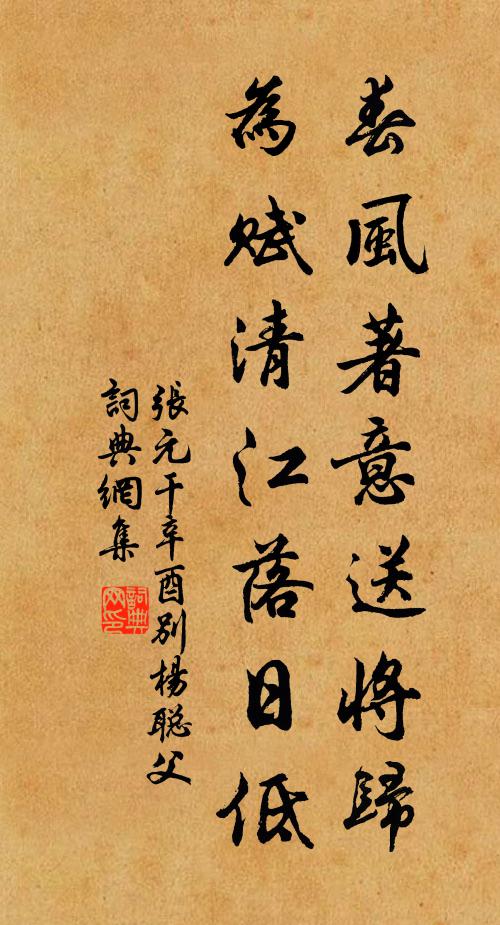 春風著意送將歸
為賦清江落日低
張元干辛酉別楊聡父
詞典網集
詞典網印